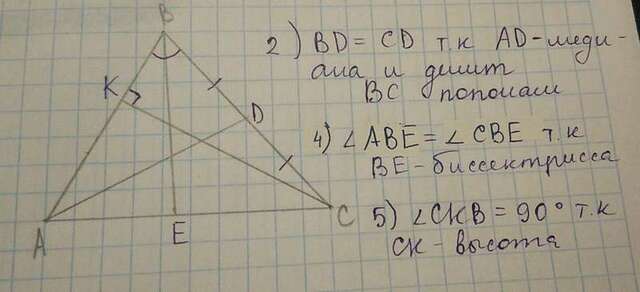 B
2) BD = CD т.к AD-меди-
ана и делит
BC попопам
K
D
4) ∠ABE = ∠CBE т.к
BE-биссектрисса
A
E
C
5) ∠CKB = 90° т.к
CK - высота